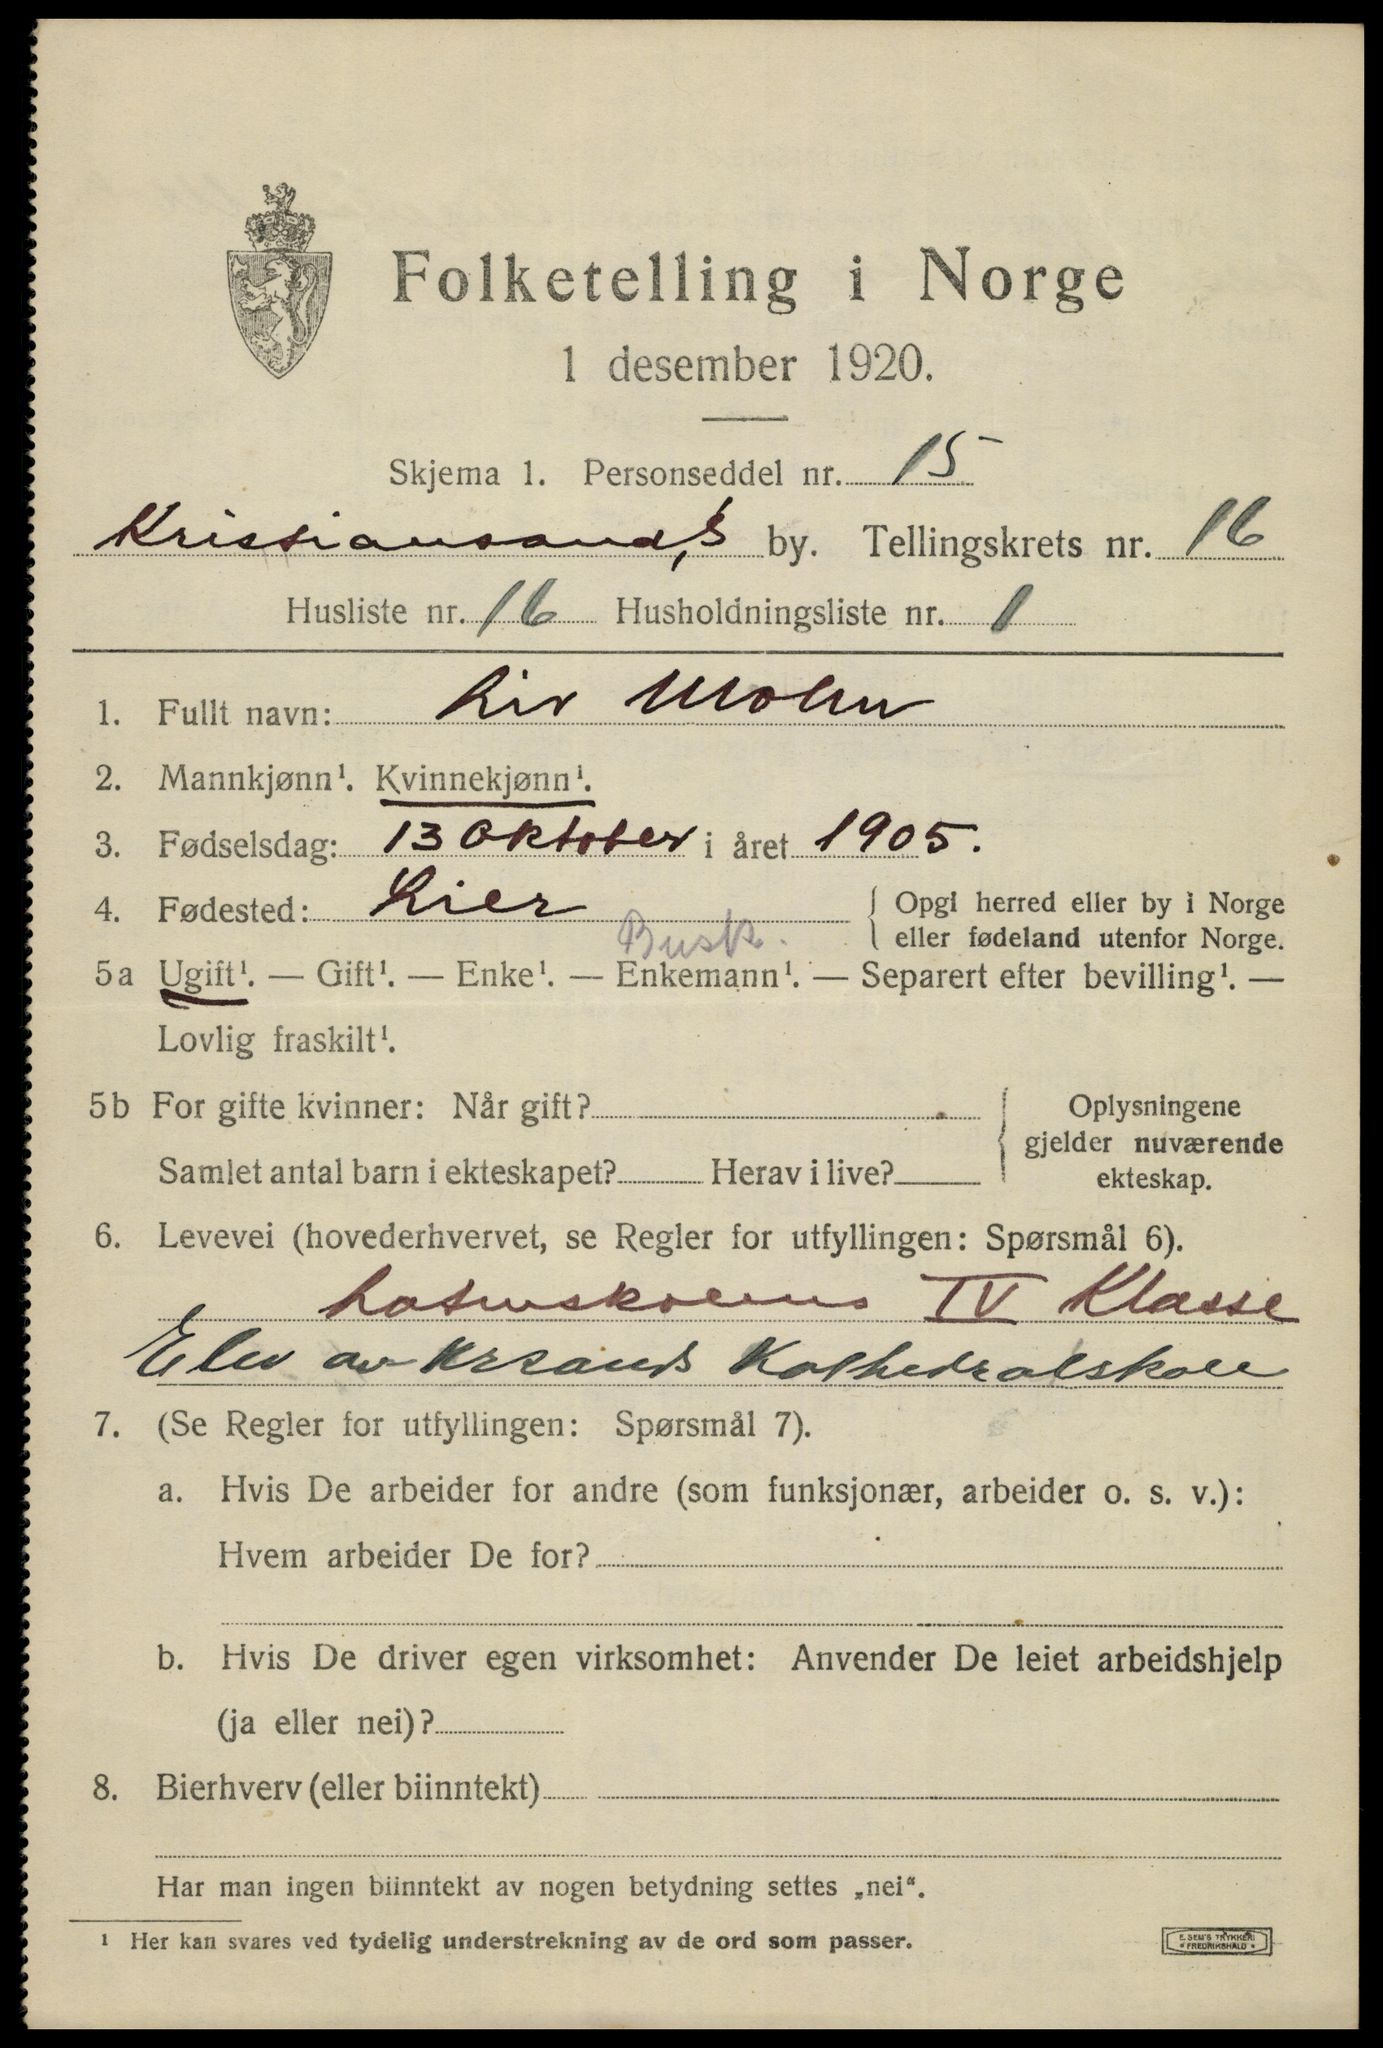 Folketelling i Norge
1 desember 1920.
Skjema 1. Personseddel nr. 15
Kristiansand, S by. Tellingskrets nr. 16
Husliste nr. 16 Husholdningsliste nr. 1
1. Fullt navn: Liv Mohn
2. Mannkjønn¹. Kvinnekjønn¹.
3. Fødselsdag: 13 Oktober i året 1905.
4. Fødested: Lier
Opgi herred eller by i Norge
eller fødeland utenfor Norge.
Busk.
5a Ugift¹. — Gift¹. — Enke¹. — Enkemann¹. — Separert efter bevilling¹. —
Lovlig fraskilt¹.
5b For gifte kvinner: Når gift?
Samlet antal barn i ekteskapet? Herav i live?
Oplysningene
gjelder nuværende
ekteskap.
6. Levevei (hovederhvervet, se Regler for utfyllingen: Spørsmål 6).
Latinskolens IV Klasse
Elev av Krsands Kathedralskole
7. (Se Regler for utfyllingen: Spørsmål 7).
a. Hvis De arbeider for andre (som funksjonær, arbeider o. s. v.):
Hvem arbeider De for?
b. Hvis De driver egen virksomhet: Anvender De leiet arbeidshjelp
(ja eller nei)?
8. Bierhverv (eller biinntekt)
Har man ingen biinntekt av nogen betydning settes „nei".
¹ Her kan svares ved tydelig understrekning av de ord som passer.
E. SEM'S TRYKKERI
FREDRIKSHALD